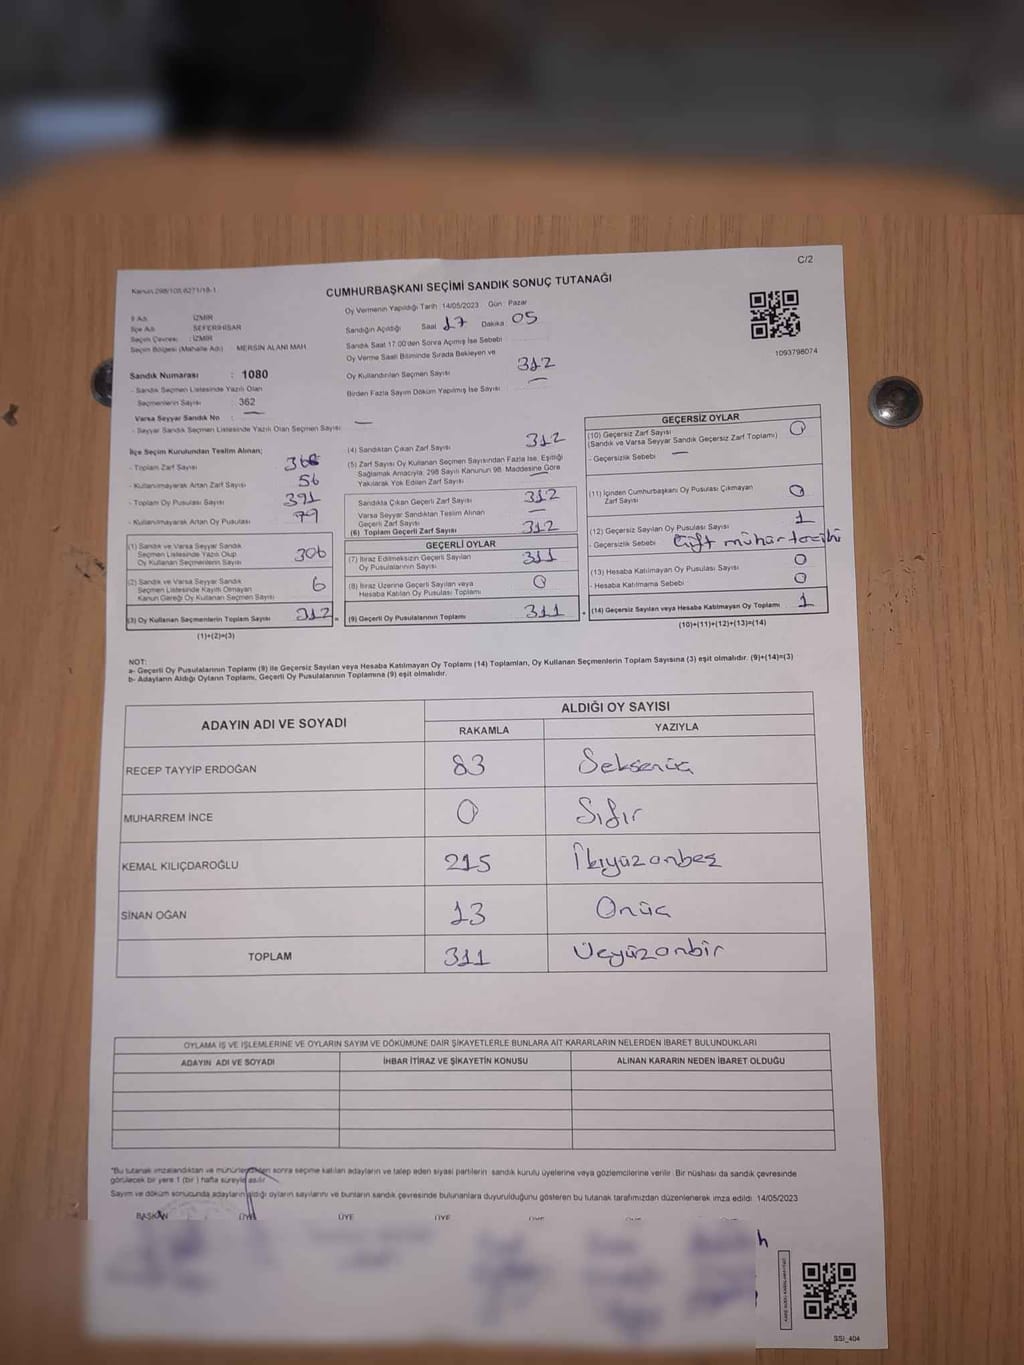 C/2
Kanun:298/105,6271/18-1
CUMHURBAŞKANI SEÇİMİ SANDIK SONUÇ TUTANAĞI
İl Adı : İZMİR
İlçe Adı : SEFERİHİSAR
Seçim Çevresi : İZMİR
Seçim Bölgesi (Mahalle Adı) : MERSİN ALANI MAH.
Sandık Numarası : 1080
- Sandık Seçmen Listesinde Yazılı Olan
Seçmenlerin Sayısı : 362
Varsa Seyyar Sandık No : —
- Seyyar Sandık Seçmen Listesinde Yazılı Olan Seçmen Sayısı : —
Oy Vermenin Yapıldığı Tarih : 14/05/2023 Gün : Pazar
Sandığın Açıldığı Saat 17 Dakika 05
Sandık Saat 17:00'den Sonra Açımış İse Sebebi
Oy Verme Saati Bitiminde Sırada Bekleyen ve
Oy Kullandırılan Seçmen Sayısı 312
Birden Fazla Sayım Döküm Yapılmış İse Sayısı —
1093798074
İlçe Seçim Kurulundan Teslim Alınan;
- Toplam Zarf Sayısı
- Kullanılmayarak Artan Zarf Sayısı 56
- Toplam Oy Pusulası Sayısı 391
- Kullanılmayarak Artan Oy Pusulası 79
(1) Sandık ve Varsa Seyyar Sandık
Seçmen Listesinde Yazılı Olup
Oy Kullanan Seçmenlerin Sayısı 306
(2) Sandık ve Varsa Seyyar Sandık
Seçmen Listesinde Kayıtlı Olmayan
Kanun Gereği Oy Kullanan Seçmen Sayısı 6
(3) Oy Kullanan Seçmenlerin Toplam Sayısı 312
(1)+(2)=(3)
(4) Sandıktan Çıkan Zarf Sayısı 312
(5) Zarf Sayısı Oy Kullanan Seçmen Sayısından Fazla İse, Eşitliği
Sağlamak Amacıyla, 298 Sayılı Kanunun 98. Maddesine Göre
Yakılarak Yok Edilen Zarf Sayısı —
Sandıkta Çıkan Geçerli Zarf Sayısı 312
Varsa Seyyar Sandıktan Teslim Alınan
Geçerli Zarf Sayısı —
(6) Toplam Geçerli Zarf Sayısı 312
GEÇERLİ OYLAR
(7) İtiraz Edilmeksizin Geçerli Sayılan
Oy Pusulalarının Sayısı 311
(8) İtiraz Üzerine Geçerli Sayılan veya
Hesaba Katılan Oy Pusulası Toplamı 0
(9) Geçerli Oy Pusulalarının Toplamı 311
GEÇERSİZ OYLAR
(10) Geçersiz Zarf Sayısı 0
(Sandık ve Varsa Seyyar Sandık Geçersiz Zarf Toplamı)
- Geçersizlik Sebebi —
(11) İçinden Cumhurbaşkanı Oy Pusulası Çıkmayan
Zarf Sayısı 0
(12) Geçersiz Sayılan Oy Pusulası Sayısı 1
- Geçersizlik Sebebi Çift mühür tercihi
(13) Hesaba Katılmayan Oy Pusulası Sayısı 0
- Hesaba Katılmama Sebebi 0
(14) Geçersiz Sayılan veya Hesaba Katılmayan Oy Toplamı 1
(10)+(11)+(12)+(13)=(14)
NOT:
a- Geçerli Oy Pusulalarının Toplamı (9) ile Geçersiz Sayılan veya Hesaba Katılmayan Oy Toplamı (14) Toplamları, Oy Kullanan Seçmenlerin Toplam Sayısına (3) eşit olmalıdır. (9)+(14)=(3)
b- Adayların Aldığı Oyların Toplamı, Geçerli Oy Pusulalarının Toplamına (9) eşit olmalıdır.
ADAYIN ADI VE SOYADI
ALDIĞI OY SAYISI
RAKAMLA YAZIYLA
RECEP TAYYİP ERDOĞAN 83 Seksenüç
MUHARREM İNCE 0 Sıfır
KEMAL KILIÇDAROĞLU 215 İkiyüzonbeş
SİNAN OĞAN 13 Onüç
TOPLAM 311 Üçyüzonbir
OYLAMA İŞ VE İŞLEMLERİNE VE OYLARIN SAYIM VE DÖKÜMÜNE DAİR ŞİKAYETLERLE BUNLARA AİT KARARLARIN NELERDEN İBARET BULUNDUKLARI
ADAYIN ADI VE SOYADI İHBAR İTİRAZ VE ŞİKAYETİN KONUSU ALINAN KARARIN NEDEN İBARET OLDUĞU
*Bu tutanak imzalandıktan ve mühürlendikten sonra seçime katılan adayların ve talep eden siyasi partilerin sandık kurulu üyelerine veya gözlemcilerine verilir. Bir nüshası da sandık çevresinde
görülecek bir yere 1 (bir) hafta süreyle asılır.
Sayım ve döküm sonucunda adayların aldığı oyların sayılarını ve bunların sandık çevresinde bulunanlara duyurulduğunu gösteren bu tutanak tarafımızdan düzenlenerek imza edildi. 14/05/2023
BAŞKAN ÜYE ÜYE ÜYE ÜYE
SSI_404